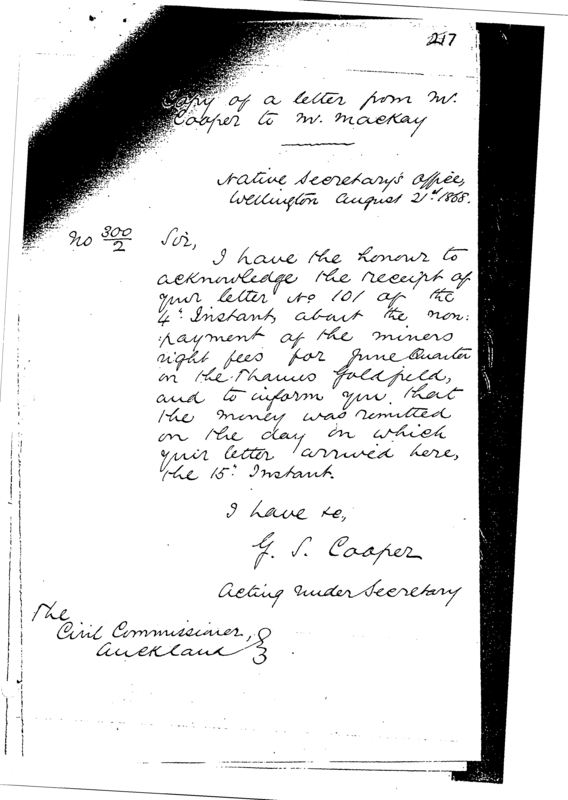 217
Copy of a letter from Mr.
Cooper to Mr. Mackay
Native Secretary's Office,
Wellington August 21st 1868.
No 300/2 Sir,
I have the honour to
acknowledge the receipt of
your letter No 101 of the
4th Instant, about the non:
:payment of the miners
right fees for June Quarter
on the Thames Goldfield,
and to inform you that
the money was remitted
on the day on which
your letter arrived here,
the 15th Instant.
I have &c,
G. S. Cooper
Acting Under Secretary
The
Civil Commissioner,
Auckland